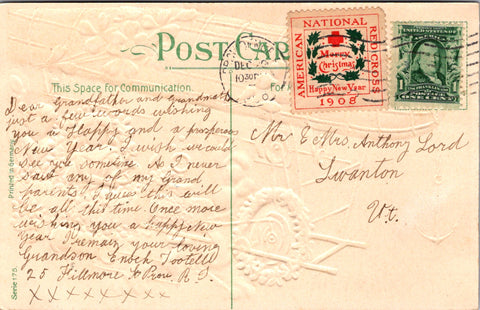 POST CARD
This Space for Communication.
Dear Grandfather and Grandma
just a few words wishing
you a Happy and a prosperous
New Year. I wish we could
see you sometime. As I never
saw any of my Grand
parents. I guess this will
be all this time. Once more
wishing you a happy New
Year I remain your loving
Grandson Enoch Tootell
25 Fillmore St Prov. R. I.
x x x x x x x x
Printed in Germany
Serie 175.
DEC
1030P
AMERICAN NATIONAL RED CROSS
Merry
Christmas
Happy New Year
1908
FRANKLIN
1
Mr & Mrs. Anthony Lord
Swanton
Vt.